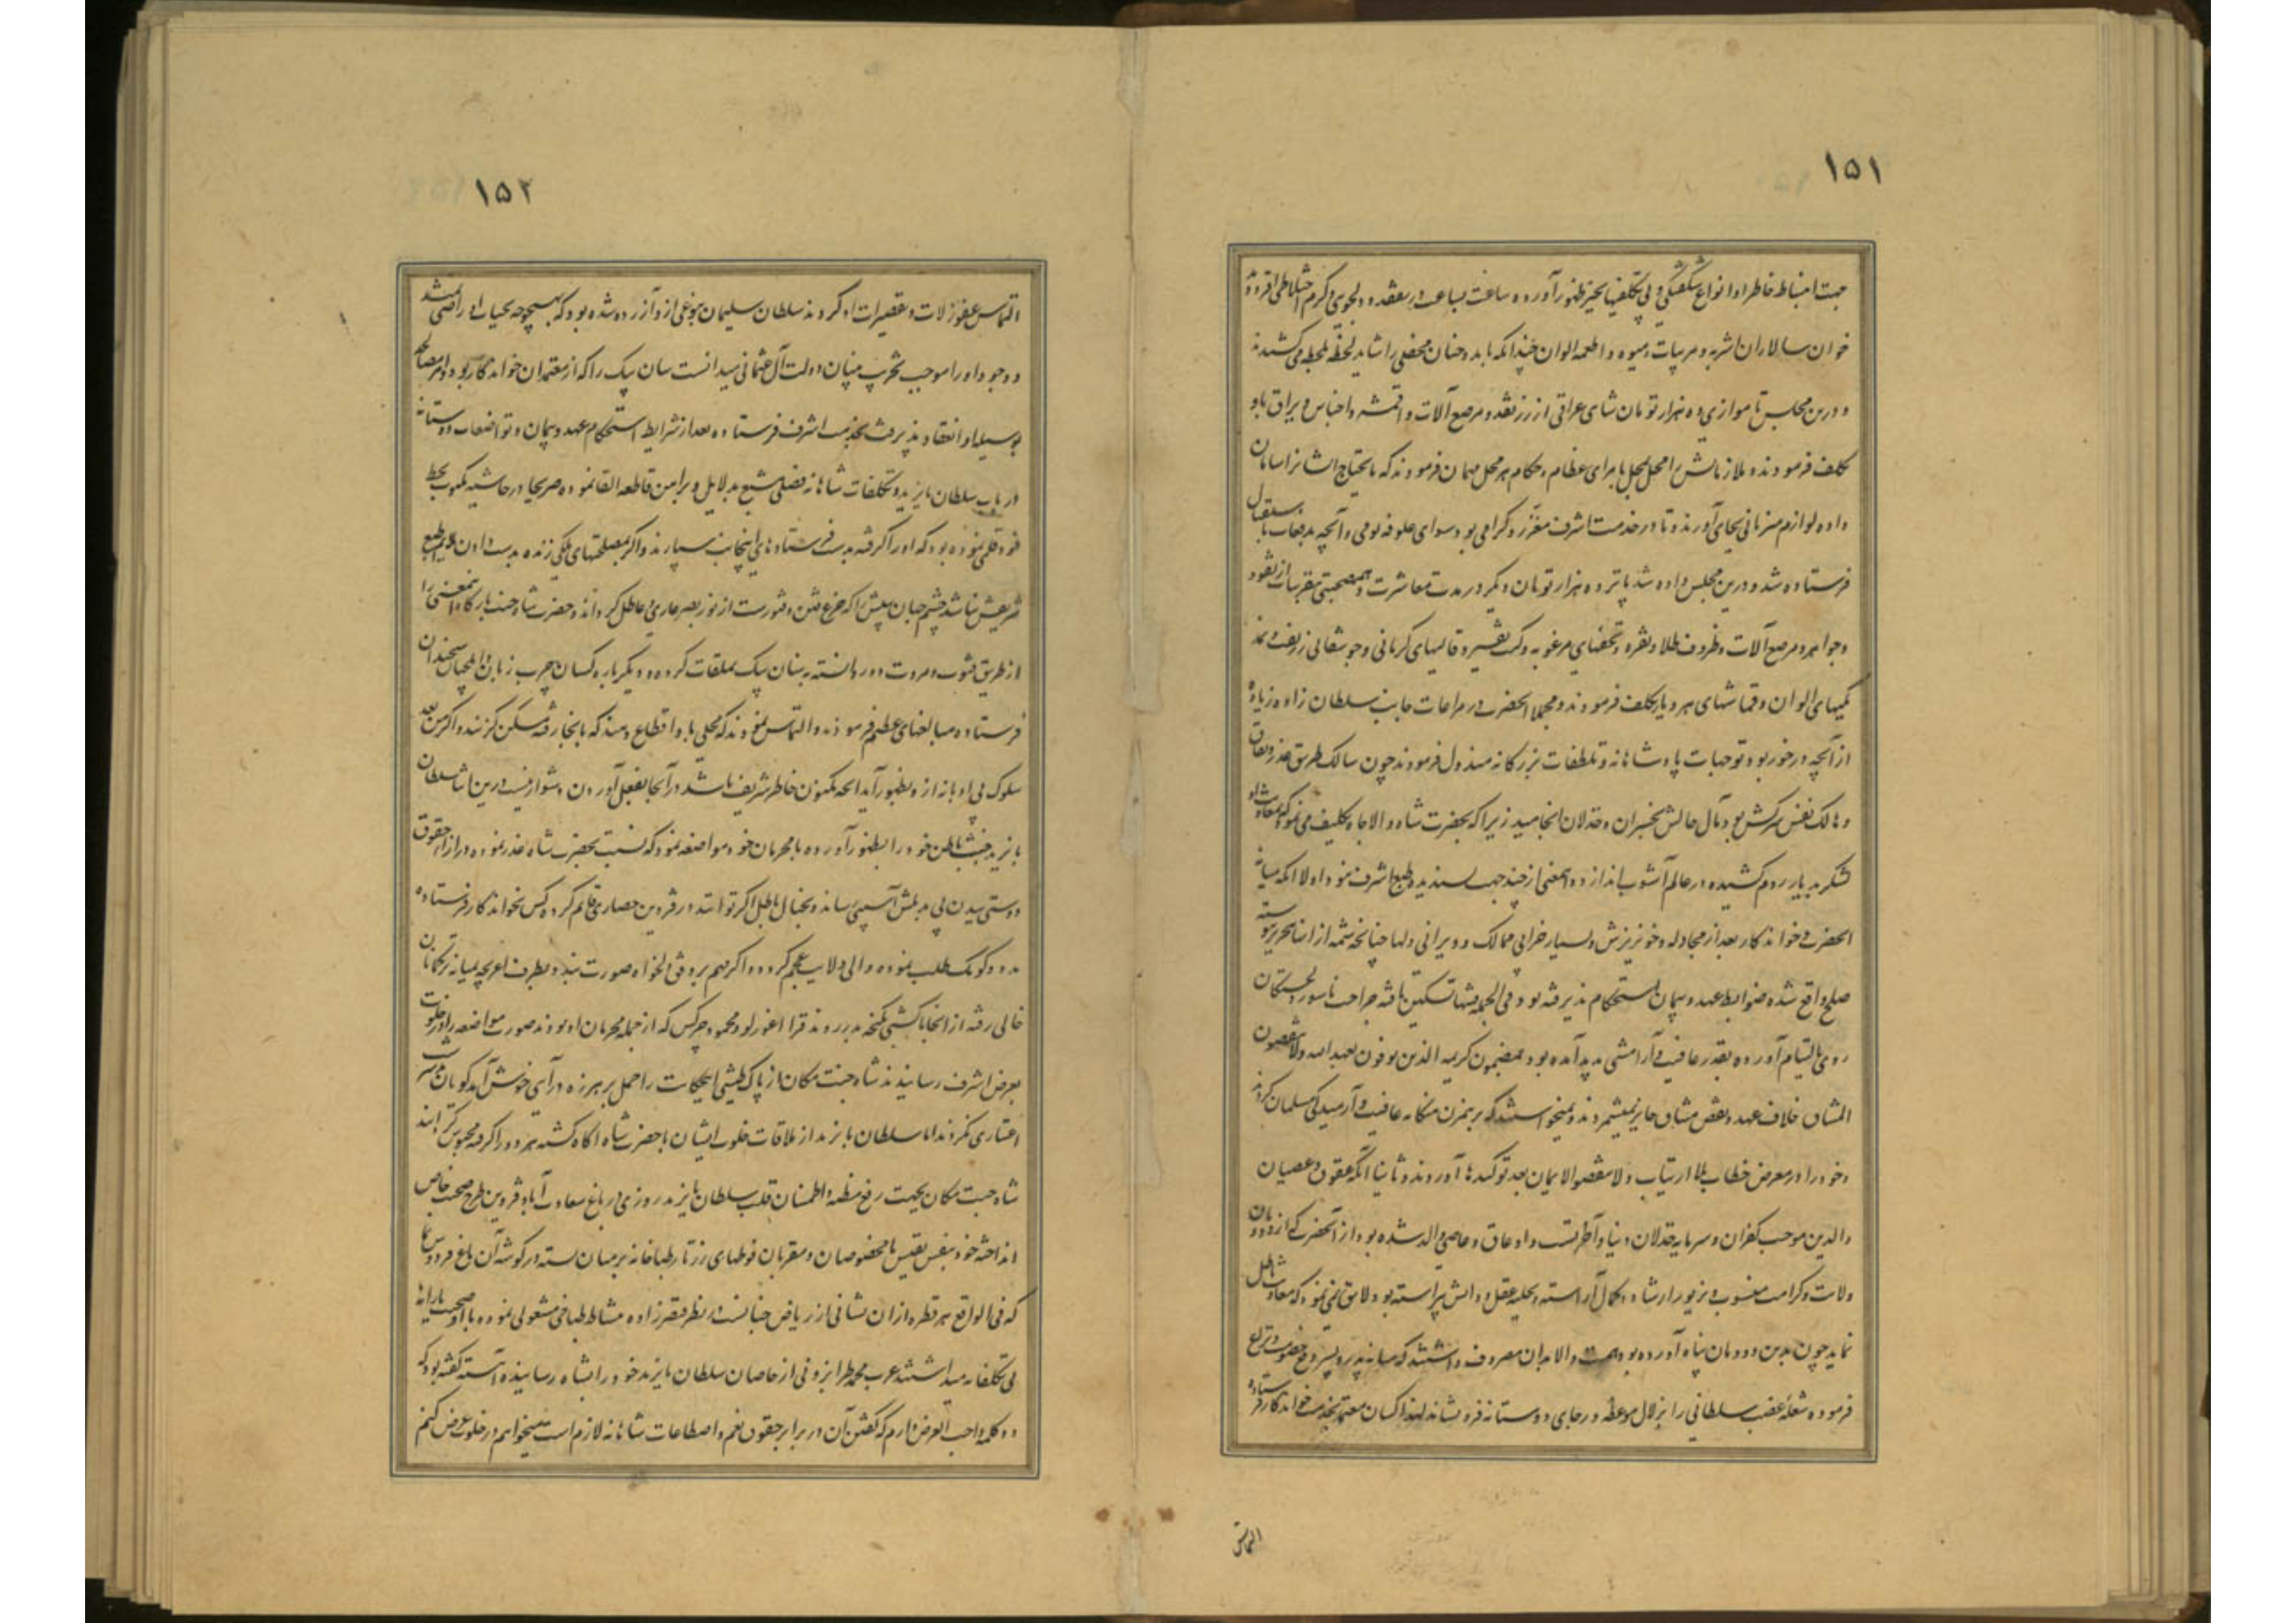 ۱۵۱
جهت انبساط خاطر او انواع شکفتگی و بی تکلفیها بحیز ظهور آورده ساعت بساعت در تفقد و دلجوئی و گرم اختلاطی افزوده
خوان سالاران اشربه و مربیات و میوه و اطعمه الوان چندانکه باید و چنان محفلی را شاید لحظه بلحظه می کشیدند
و درین مجلس تا موازی ده هزار تومان شاهی عراقی از زر نقد و مرصع آلات و اقمشه و اجناس و یراق باو
تکلف فرمودند و ملازمانش را محل بمحل بامرای عظام و حکام هر محل مهمان فرمودند که مایحتاج ایشانرا سامان
داده لوازم میزبانی بجای آورند و تا در خدمت اشرف معزز و گرامی بود سوای علوفه یومی و آنچه بدفعات باستقبال
فرستاده شد و درین مجلس داده شد پانزده هزار تومان دیگر در مدت معاشرت و همصحبتی بتقریبات از نقود
و جواهر و مرصع آلات و ظروف طلا و نقره و تحفهای مرغوبه و کتب نفیسه و قالیهای کرمانی و جوشقانی زربفت و نمد
تکیهای الوان و قماشهای هر دیار تکلف فرمودند و مجملا آنحضرت در مراعات جانب سلطان زاده زیاده
از آنچه در خور بود توجهات پادشاهانه و تلطفات بزرگانه مبذول فرمودند چون سالک طریق غدر و نفاق
و هالک نفس سرکش بود مآل حالش بخسران و خذلان انجامید زیرا که بحضرت شاه والا جاه تکلیف می نمود که بمعاونت او
لشکر بدیار روم کشیده در عالم آشوب اندازد و اینمعنی از چند جهت پسندیده طبع اشرف نبود اولا آنکه میانه
آنحضرت و خواندکار بعد از مجادله و خونریزش بسیار و خرابی ممالک و ویرانی دلها چنانچه شمه از آن بتحریر پیوسته
صلح واقع شده ضوابط عهد و پیمان استحکام پذیرفته بود و فی الجمله فتنها تسکین یافته جراحت ناسور دلخستگان
روی بالتیام آورده بقدر عافیت و آرامشی پدید آمده بود بمضمون کریمه الذین یوفون بعهد الله ولا ینقضون
المیثاق خلاف عهد و نقض میثاق جایز نمیشمردند و نمیخواستند که برهمزن هنگامه عافیت و آرمیدگی مسلمانان گردند
و خود را در معرض خطاب بلا ارتیاب ولا تنقضوا الایمان بعد توکیدها آورند و ثانیا آنکه عقوق و عصیان
والدین موجب کفران و سرمایه خذلان دنیا و آخرتست و او عاق و عاصی والد شده بود از آنحضرت که از دودمان
ولایت و کرامت منسوب و بزیور ارشاد و کمال آراسته و بحلیه عقل و دانش پیراسته بود لایق نمی نمود که معاونت اهل
نماید چون بدین دودمان پناه آورده بود همت والا بدان مصروف داشتند که میانه پدر و پسر رفع خصومت و نزاع
فرموده شعله غضب سلطانی را بزلال موعظه و رجای دوستانه فرو نشاند لهذا کسان معتمد بخدمت خواندکار فرستاده
التماس
۱۵۲
التماس عفو زلات و تقصیرات او کردند سلطان سلیمان بنوعی از او آزرده شده بود که بهیچوجه بحیات او راضی نمیشد
و وجود او را موجب تخریب بنیان دولت آل عثمانی میدانست سنان بیک را که از معتمدان خواندکار بود و امر مصالحه
بوسیله او انعقاد پذیرفت بخدمت اشرف فرستاده بعد از شرایط استحکام عهد و پیمان و تواضعات دوستانه
در باب سلطان بایزید و تکلفات شاهانه فصلی مشبع بدلایل و براهین قاطعه القا نموده صریحا در حاشیه مکتوب بخط
خود قلمی نموده بود که او را گرفته بدست فرستادهای اینجانب سپارند و اگر بمصلحتهای ملکی زنده بدست دادن ملایم طبع
شریفش نباشد چشم جهان بینش را که خرع فتن و شورست از نور بصر عاری و عاطل گردانند و حضرت شاه جنت بارگاه اینمعنی را
از طریق فتوت و مروت دور دانسته بسنان بیک ملاقات کرده و دیگر باره کسان چرب زبان و ایلچیان سخندان
فرستاده مبالغهای عظیم فرمودند و التماس نمودند که محلی باو اقطاع دهند که بآنجا رفته مسکن گزیند و اگر من بعد
سلوک بی ادبانه از او بظهور آید آنچه مکنون خاطر شریف باشد در آنجا بفعل آوردن دشوار نیست درین اثنا سلطان
بایزید خبث باطن خود را بظهور آورده با محرمان خود مواضعه نمود که نسبت بحضرت شاه غدر نموده در ازای حقوق
دوستی بدن بی بدیلش آسیبی رساند و بخیال باطل اگر توانند در قزوین حصاری قایم کرده کس بخواندکار فرستاده
مدد و کومک طلب نموده والی ولایت عجم گردد و اگر مهم بر وفق دلخواه صورت نبندد بطرف اغریجه بمیانه ترکمانان
خالی رفته از آنجا بکشتی گریخته بدر روند قرا اغورلو و محمود چرکس که از جمله محرمان او بودند صورت مواضعه را در خلوت
بعرض اشرف رسانیدند شاه جنت مکان از پاک طینتی این حکایت را حمل بر هرزه درآیی خوش آمدگویان
اعتباری نکردند اما سلطان بایزید از ملاقات خلوت ایشان با حضرت شاه آگاه گشته هر دو را گرفته محبوس گردانید
شاه جنت مکان بجهت رفع مظنه و اطمینان قلب سلطان بایزید روزی در باغ سعادت آباد قزوین طرح صحبت خاص
انداخته خود بنفس نفیس با مخصوصان و مقربان فوطهای زرتار طباخانه بر میان بسته در گوشه آن باغ فردوس نما
که فی الواقع هر قطره از آن نشانی از ریاض جنانست در نظر قیصرزاده بنشاط طباخی مشغولی نموده با او صحبت یارانه
بی تکلفانه میداشتند عرب محمد طرابزونی از خاصان سلطان بایزید خود را بشاه رسانیده آهسته گفته بود که
دو کلمه واجب العرض دارم که گفتن آن در برابر حقوق نعم و اصطناعات شاهانه لازم است میخواهم در خلوت عرض کنم